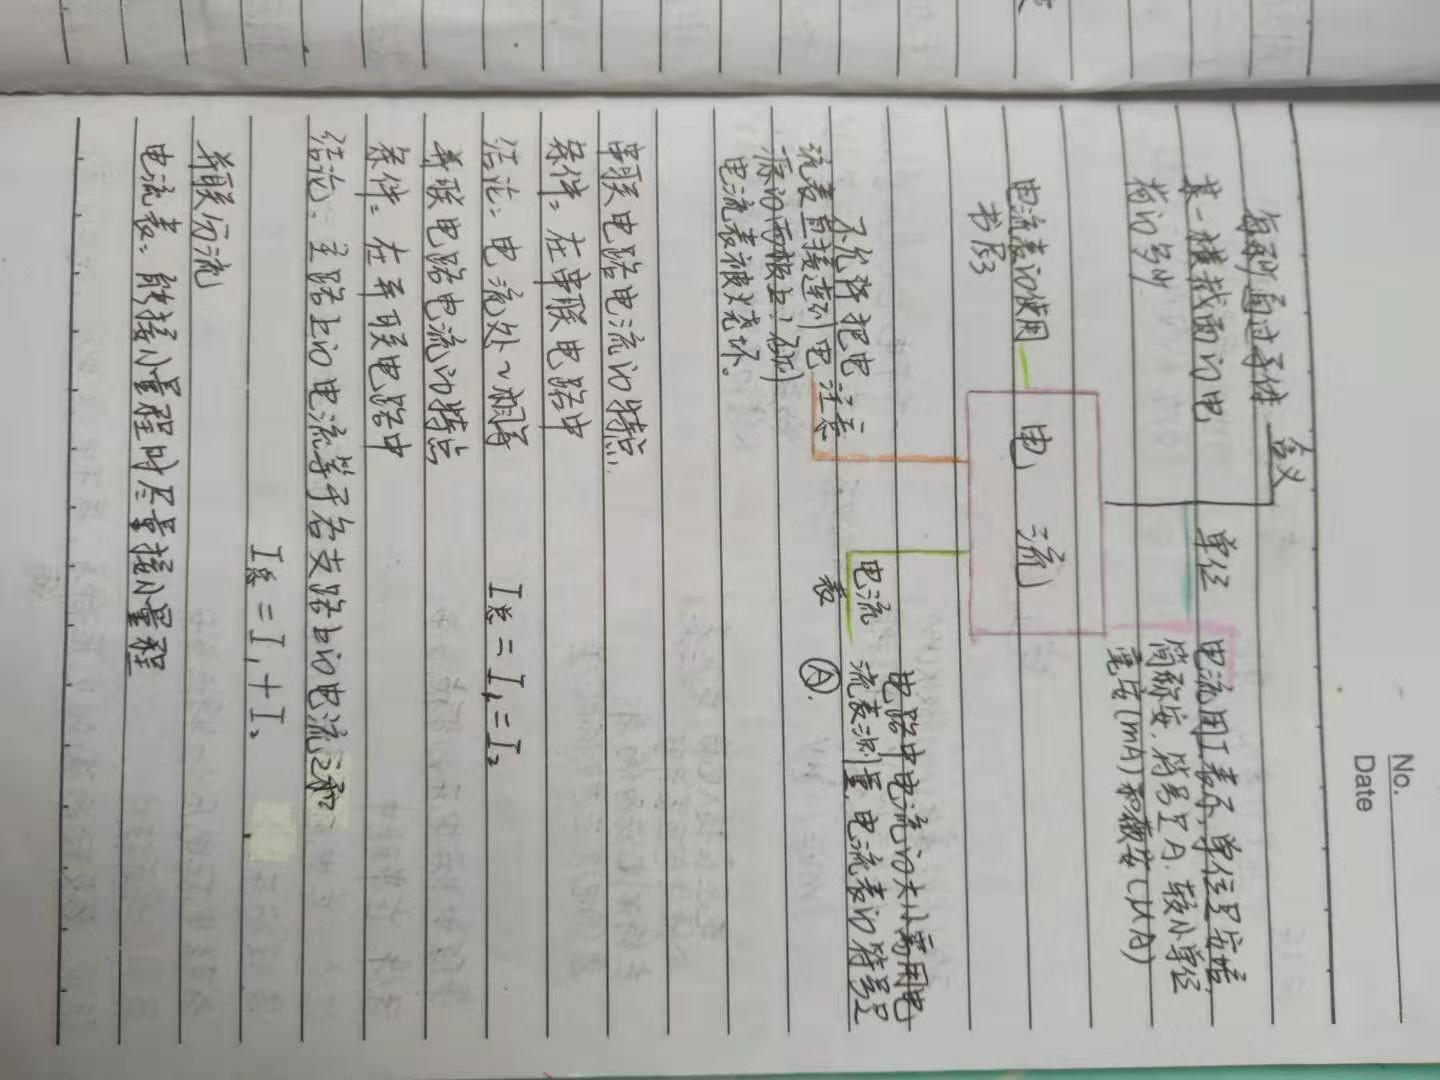 No.
Date
含义
每秒通过导体
某一横截面的电
荷的多少
单位
电流用I表示,单位是安培,
简称安.符号是A.较小单位
毫安(mA)和微安(μA)
电流
电流表的使用
书后3
注意
不允许把电
流表直接连到电
源的两极上
电流表被烧坏。
电流
表
电路中电流的大小需用电
流表测量,电流表的符号是
Ⓐ.
串联电路电流的特点.
条件:在串联电路中
结论:电流处~相等
I总=I₁=I₂
并联电路电流的特点
条件:在并联电路中
结论:主路上的电流等于各支路上的电流之和
I总=I₁+I₂
并联分流
电流表:能接小量程时尽量接小量程